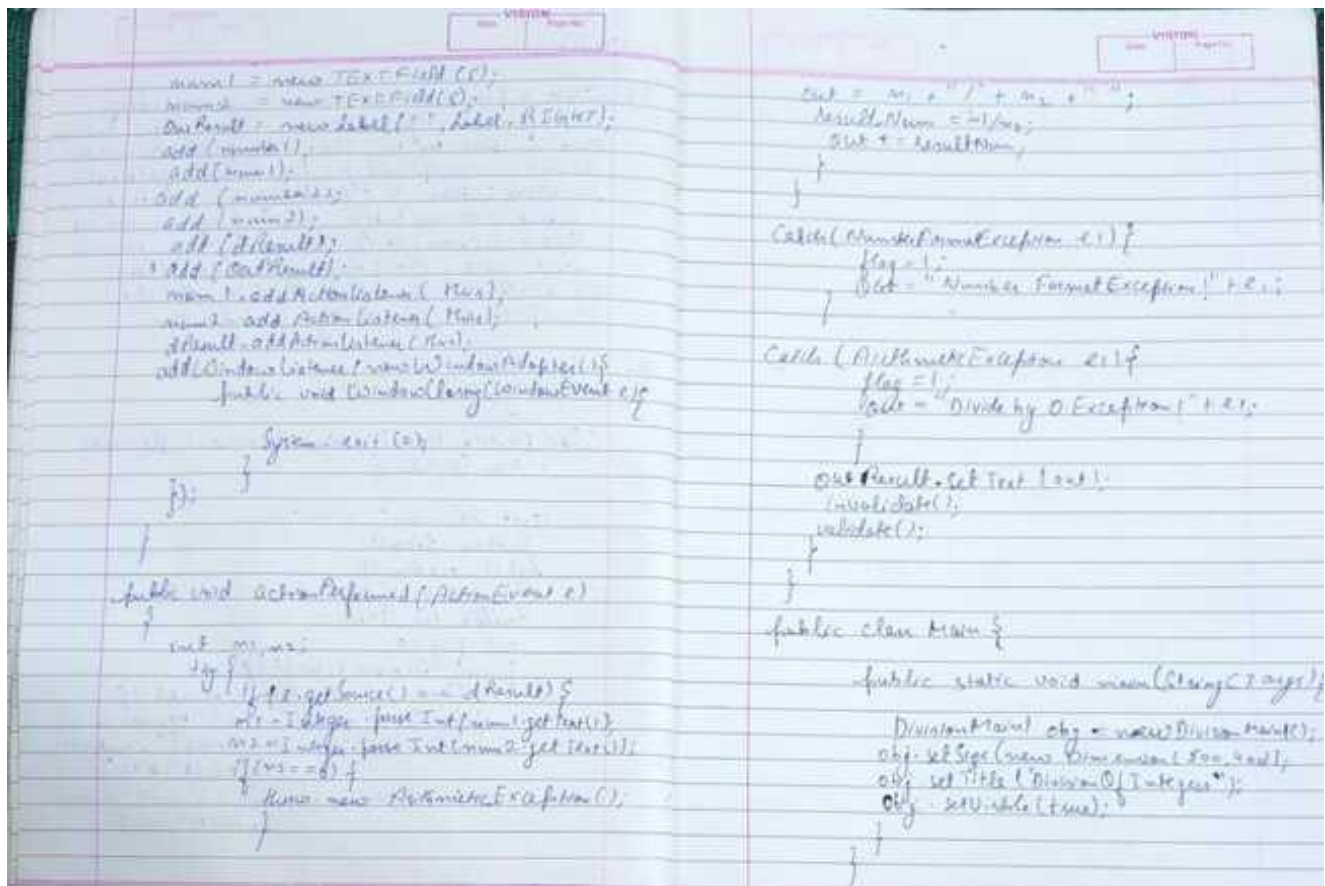 VISION
Date Page No.
num1 = new TEXTField(5);
num2 = new TEXTField(5);
OutResult = new Label(" ", Label.RIGHT);
add(number1);
add(num1);
add (number2);
add (num2);
add (dResult);
add (OutResult);
num1.addActionListener(this);
num2.addActionListener(this);
dResult.addActionListener(this);
addWindowListener(new WindowAdapter(){
public void WindowClosing(WindowEvent e){
System.exit(0);
}
});
}
public void actionPerformed(ActionEvent e)
{
int n1, n2;
try {
if (e.getSource() == dResult) {
n1 = Integer.parseInt(num1.getText());
n2 = Integer.parseInt(num2.getText());
if(n2==0) {
throw new ArithmeticException();
}
VISION
Date Page No.
out = n1 + "/" + n2 + " ";
resultNum = n1/n2;
out += resultNum;
}
}
Catch(NumberFormatException e1){
flag = 1;
Out = "Number FormatException!" + e1;
}
Catch (ArithmeticException e1){
flag = 1;
out = "Divide by 0 Exception!" + e1;
}
OutResult.setText(out);
invalidate();
validate();
}
}
public class Main {
public static void main(String[] args){
DivisionMain1 obj = new DivisionMain1();
obj.setSize(new Dimension(500,400));
obj.setTitle("DivisionOfIntegers");
Obj.setVisible(true);
}
}